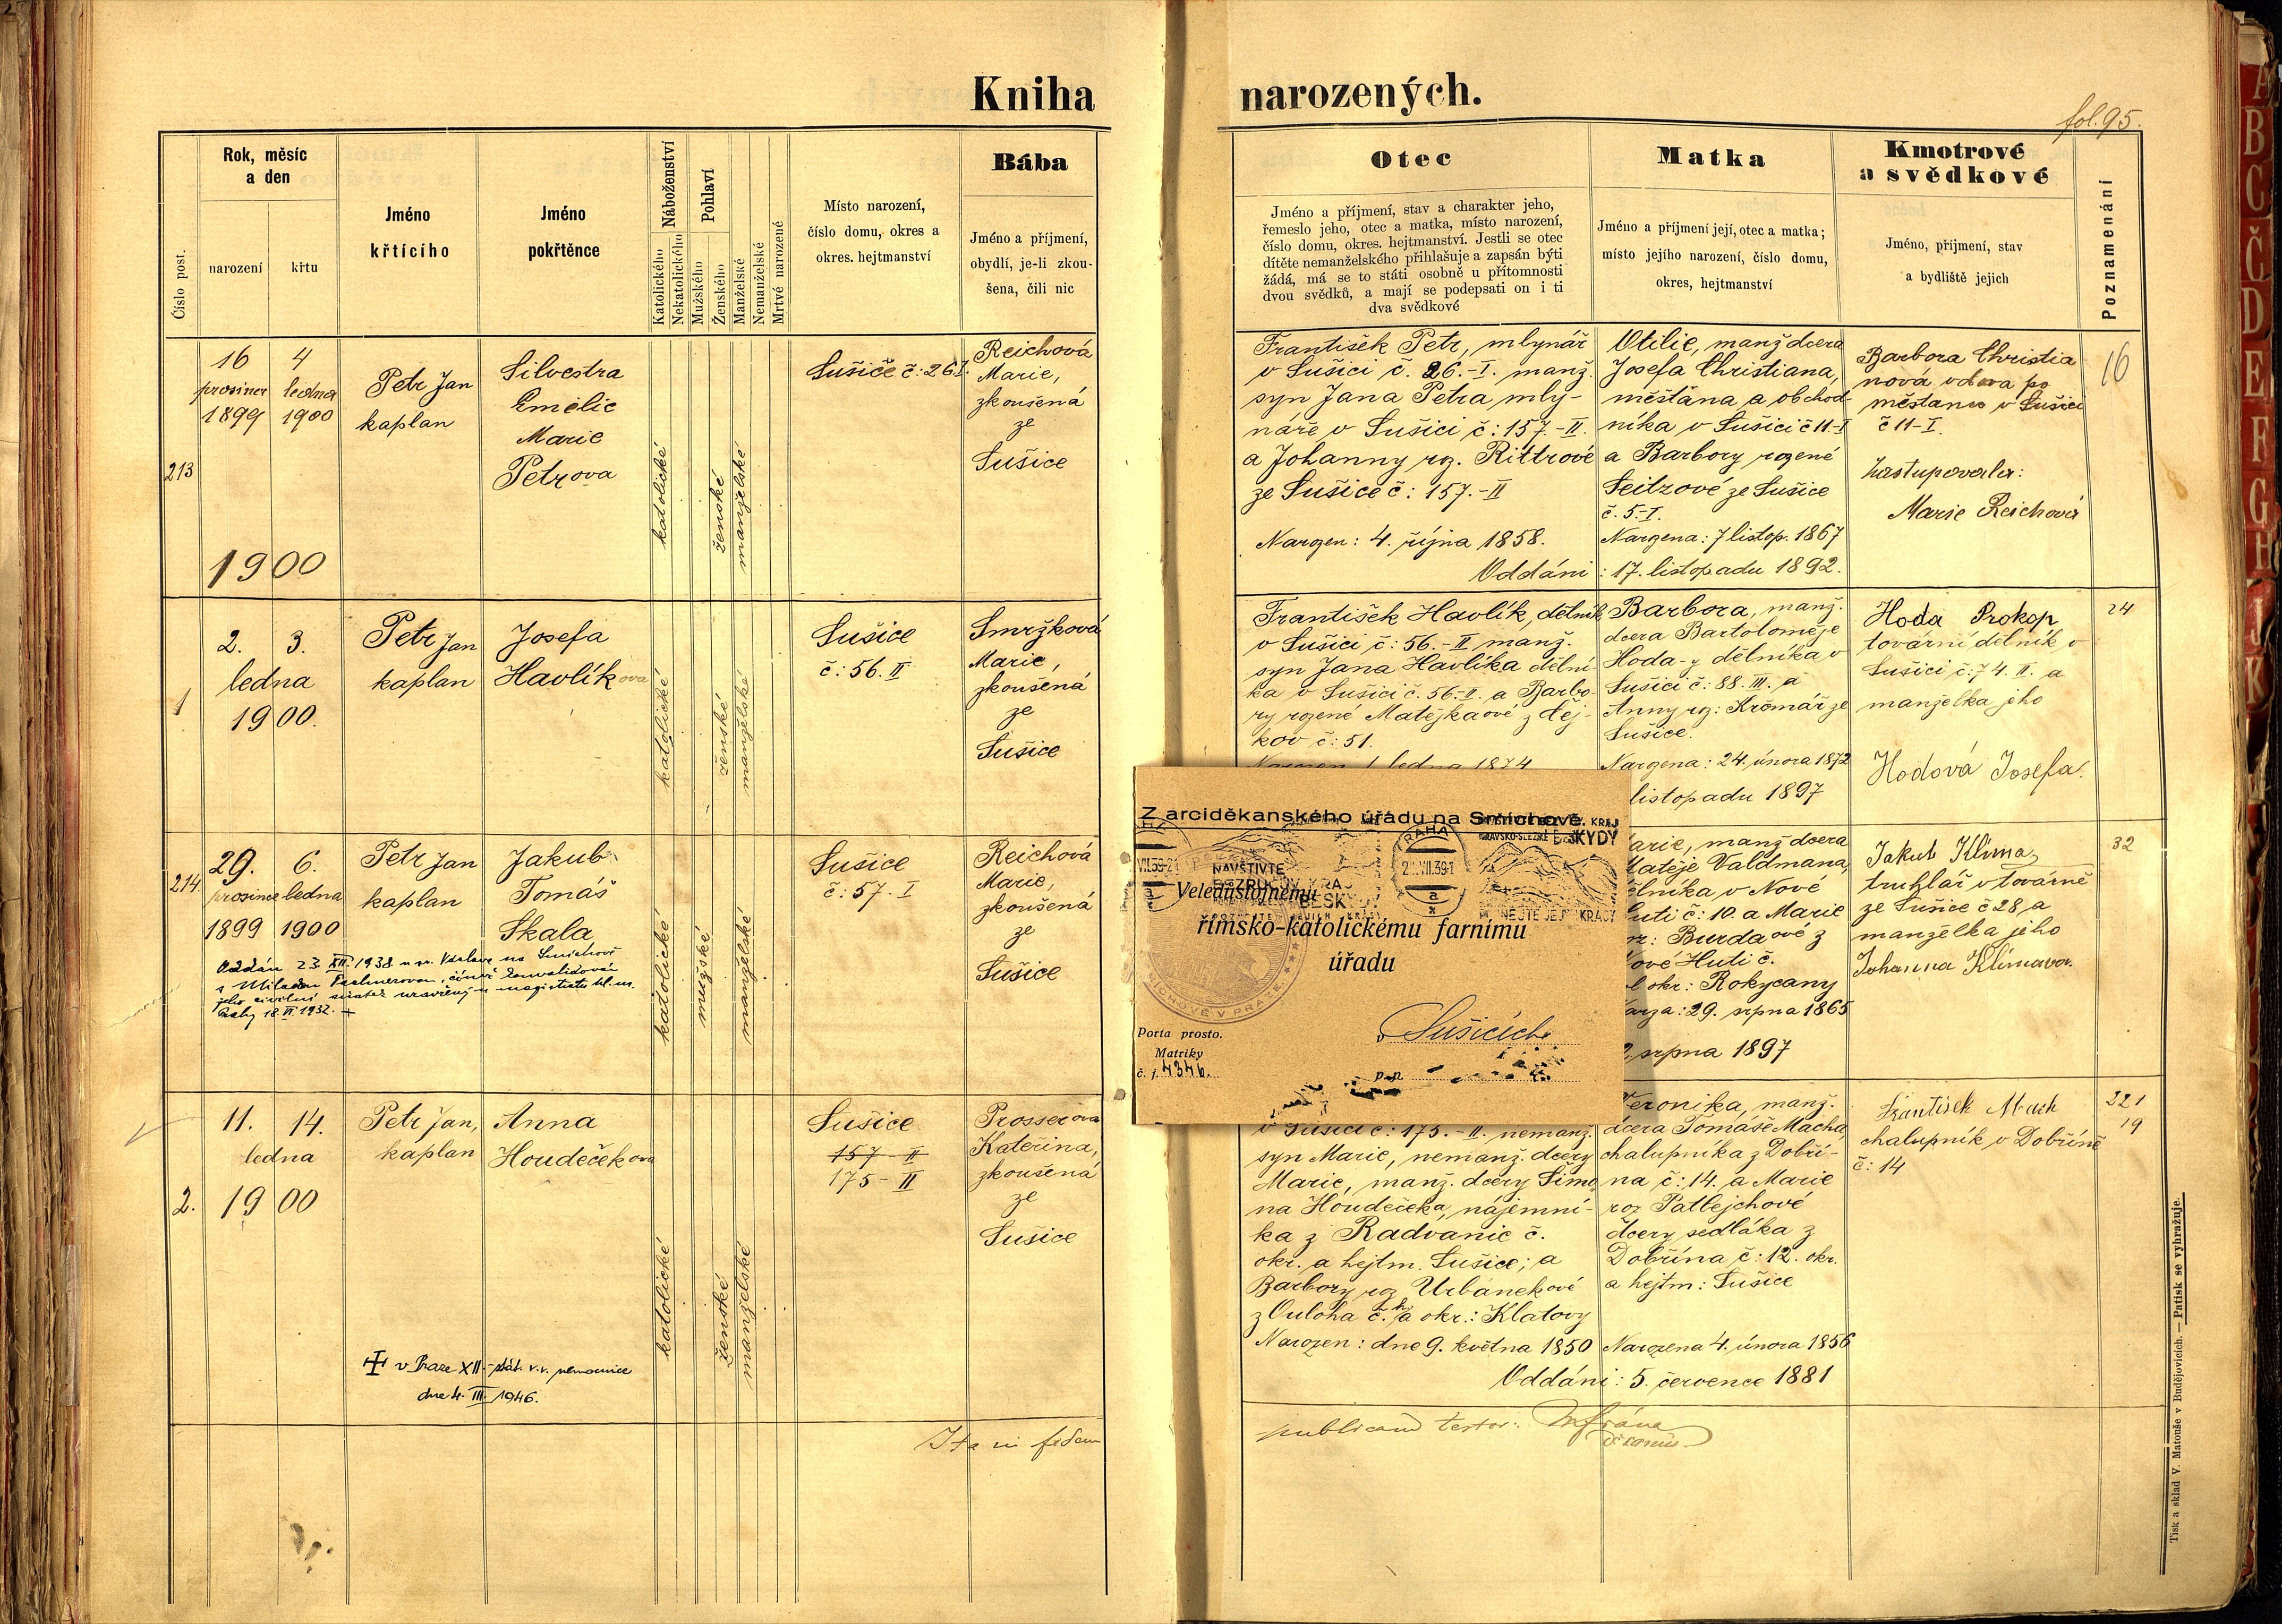 Kniha
narozených.
fol. 95.
Číslo post.
Rok, měsíc
a den
narození
křtu
Jméno
křtícího
Jméno
pokřtěnce
Náboženství
Katolického
Nekatolického
Pohlaví
Mužského
Ženského
Manželské
Nemanželské
Mrtvé narozené
Místo narození,
číslo domu, okres a
okres. hejtmanství
Bába
Jméno a příjmení,
obydlí, je-li zkou-
šena, čili nic
Otec
Jméno a příjmení, stav a charakter jeho,
řemeslo jeho, otec a matka, místo narození,
číslo domu, okres. hejtmanství. Jestli se otec
dítěte nemanželského přihlašuje a zapsán býti
žádá, má se to státi osobně u přítomnosti
dvou svědků, a mají se podepsati on i ti
dva svědkové
Matka
Jméno a příjmení její, otec a matka;
místo jejího narození, číslo domu,
okres, hejtmanství
Kmotrové
a svědkové
Jméno, příjmení, stav
a bydliště jejich
Poznamenání
213
16
prosince
1899
4
ledna
1900
Petr Jan
kaplan
Silvestra
Emilie
Marie
Petrova
katolické
ženské
manželské
Sušice č: 26 I.
Reichová
Marie,
zkoušená
ze
Sušice
František Petr, mlynář
v Sušici č. 26.-I. manž.
syn Jana Petra mly-
náře v Sušici č: 157.-II.
a Johanny rz. Rittrové
ze Sušice č: 157.-II
Narozen: 4. října 1858.
Otilie, manž dcera
Josefa Christiana,
měšťana a obchod-
níka v Sušici č 11.-I
a Barbory rozené
Seitzové ze Sušice
č. 5.-I.
Narozena: 7 listop. 1867
Oddáni: 17. listopadu 1892.
Barbora Christia
nová vdova po
měštanu v Sušici
č 11-I.
Zastupovala:
Marie Reichová
16
1900
1
2. 3.
ledna
1900.
Petr Jan
kaplan
Josefa
Havlíkova
katolické
ženské
manželské
Sušice
č: 56. II
Smržková
Marie,
zkoušená
ze
Sušice
František Havlík, dělník
v Sušici č: 56.-II manž.
syn Jana Havlíka dělní
ka v Sušici č. 56.-II. a Barbo-
ry rozené Matějkaové z Čej-
kov č: 51.
Narozen 1 ledna 1874
Barbora, manž.
dcera Bartoloměje
Hoda-y dělníka v
Sušici č: 88. III. a
Anny rz: Krčmář ze
Sušice.
Narozena: 24. února 1872
listopadu 1897
Hoda Prokop
tovární dělník v
Sušici č: 74. II. a
manželka jeho
Hodová Josefa.
24
214.
29.
prosince
1899
6.
ledna
1900
Petr Jan
kaplan
Jakub
Tomáš
Skala
Oddán 23. XII. 1938 u sv. Václava na Smíchově
jeho civilní sňatek uzavřený u magistrátu hl. m.
Prahy 18. VI. 1932. +
katolické
mužské
manželské
Sušice
č: 57. I
Reichová
Marie,
zkoušená
ze
Sušice
Z arciděkanského úřadu na Smíchově.
PRAHA
NAVŠTIVTE
BESKYDY
Veledůstojnému
římsko-katolickému farnímu
úřadu
v Sušicích
Porta prosto.
Matriky
č. j. 4346.
p. p.
arie, manž dcera
Matěje Valdmana,
ělníka v Nové
Huti č: 10. a Marie
roz: Burdaové z
Nové Huti č.
okr: Rokycany
Narza: 29. srpna 1865
srpna 1897
Jakub Klima,
truhlář v továrně
ze Sušice č 28 a
manželka jeho
Johanna Klímova.
32
2.
11. 14.
ledna
1900
Petr Jan,
kaplan
Anna
Houdečkova
katolické
ženské
manželské
Sušice
157-II
175-II
Prosserova
Kateřina,
zkoušená
ze
Sušice
v Sušici č: 175.-II. nemanž.
syn Marie, nemanž. dcery
Marie, manž. dcery Šimo-
na Houdečeka, nájemní-
ka z Radvanic č.
okr. a hejtm. Sušice; a
Barbory roz Urbánekové
z Ouloha č. h. a okr.: Klatovy
Narozen: dne 9. května 1850
Veronika, manž.
dcera Tomáše Macha,
chalupníka z Dobří-
na č: 14. a Marie
roz Patlejchové
dcery sedláka z
Dobřína č: 12. okr.
a hejtm: Sušice
Narozena 4. února 1856
Oddáni: 5. července 1881
František Mach
chalupník v Dobříně
č: 14
221
19
v Praze XII.-stát. v.v. nemocnice
dne 4. III. 1946.
Ita in fidem
publicam testor:
decanus
Tisk a sklad V. Matouše v Budějovicích. — Patisk se vyhražuje.